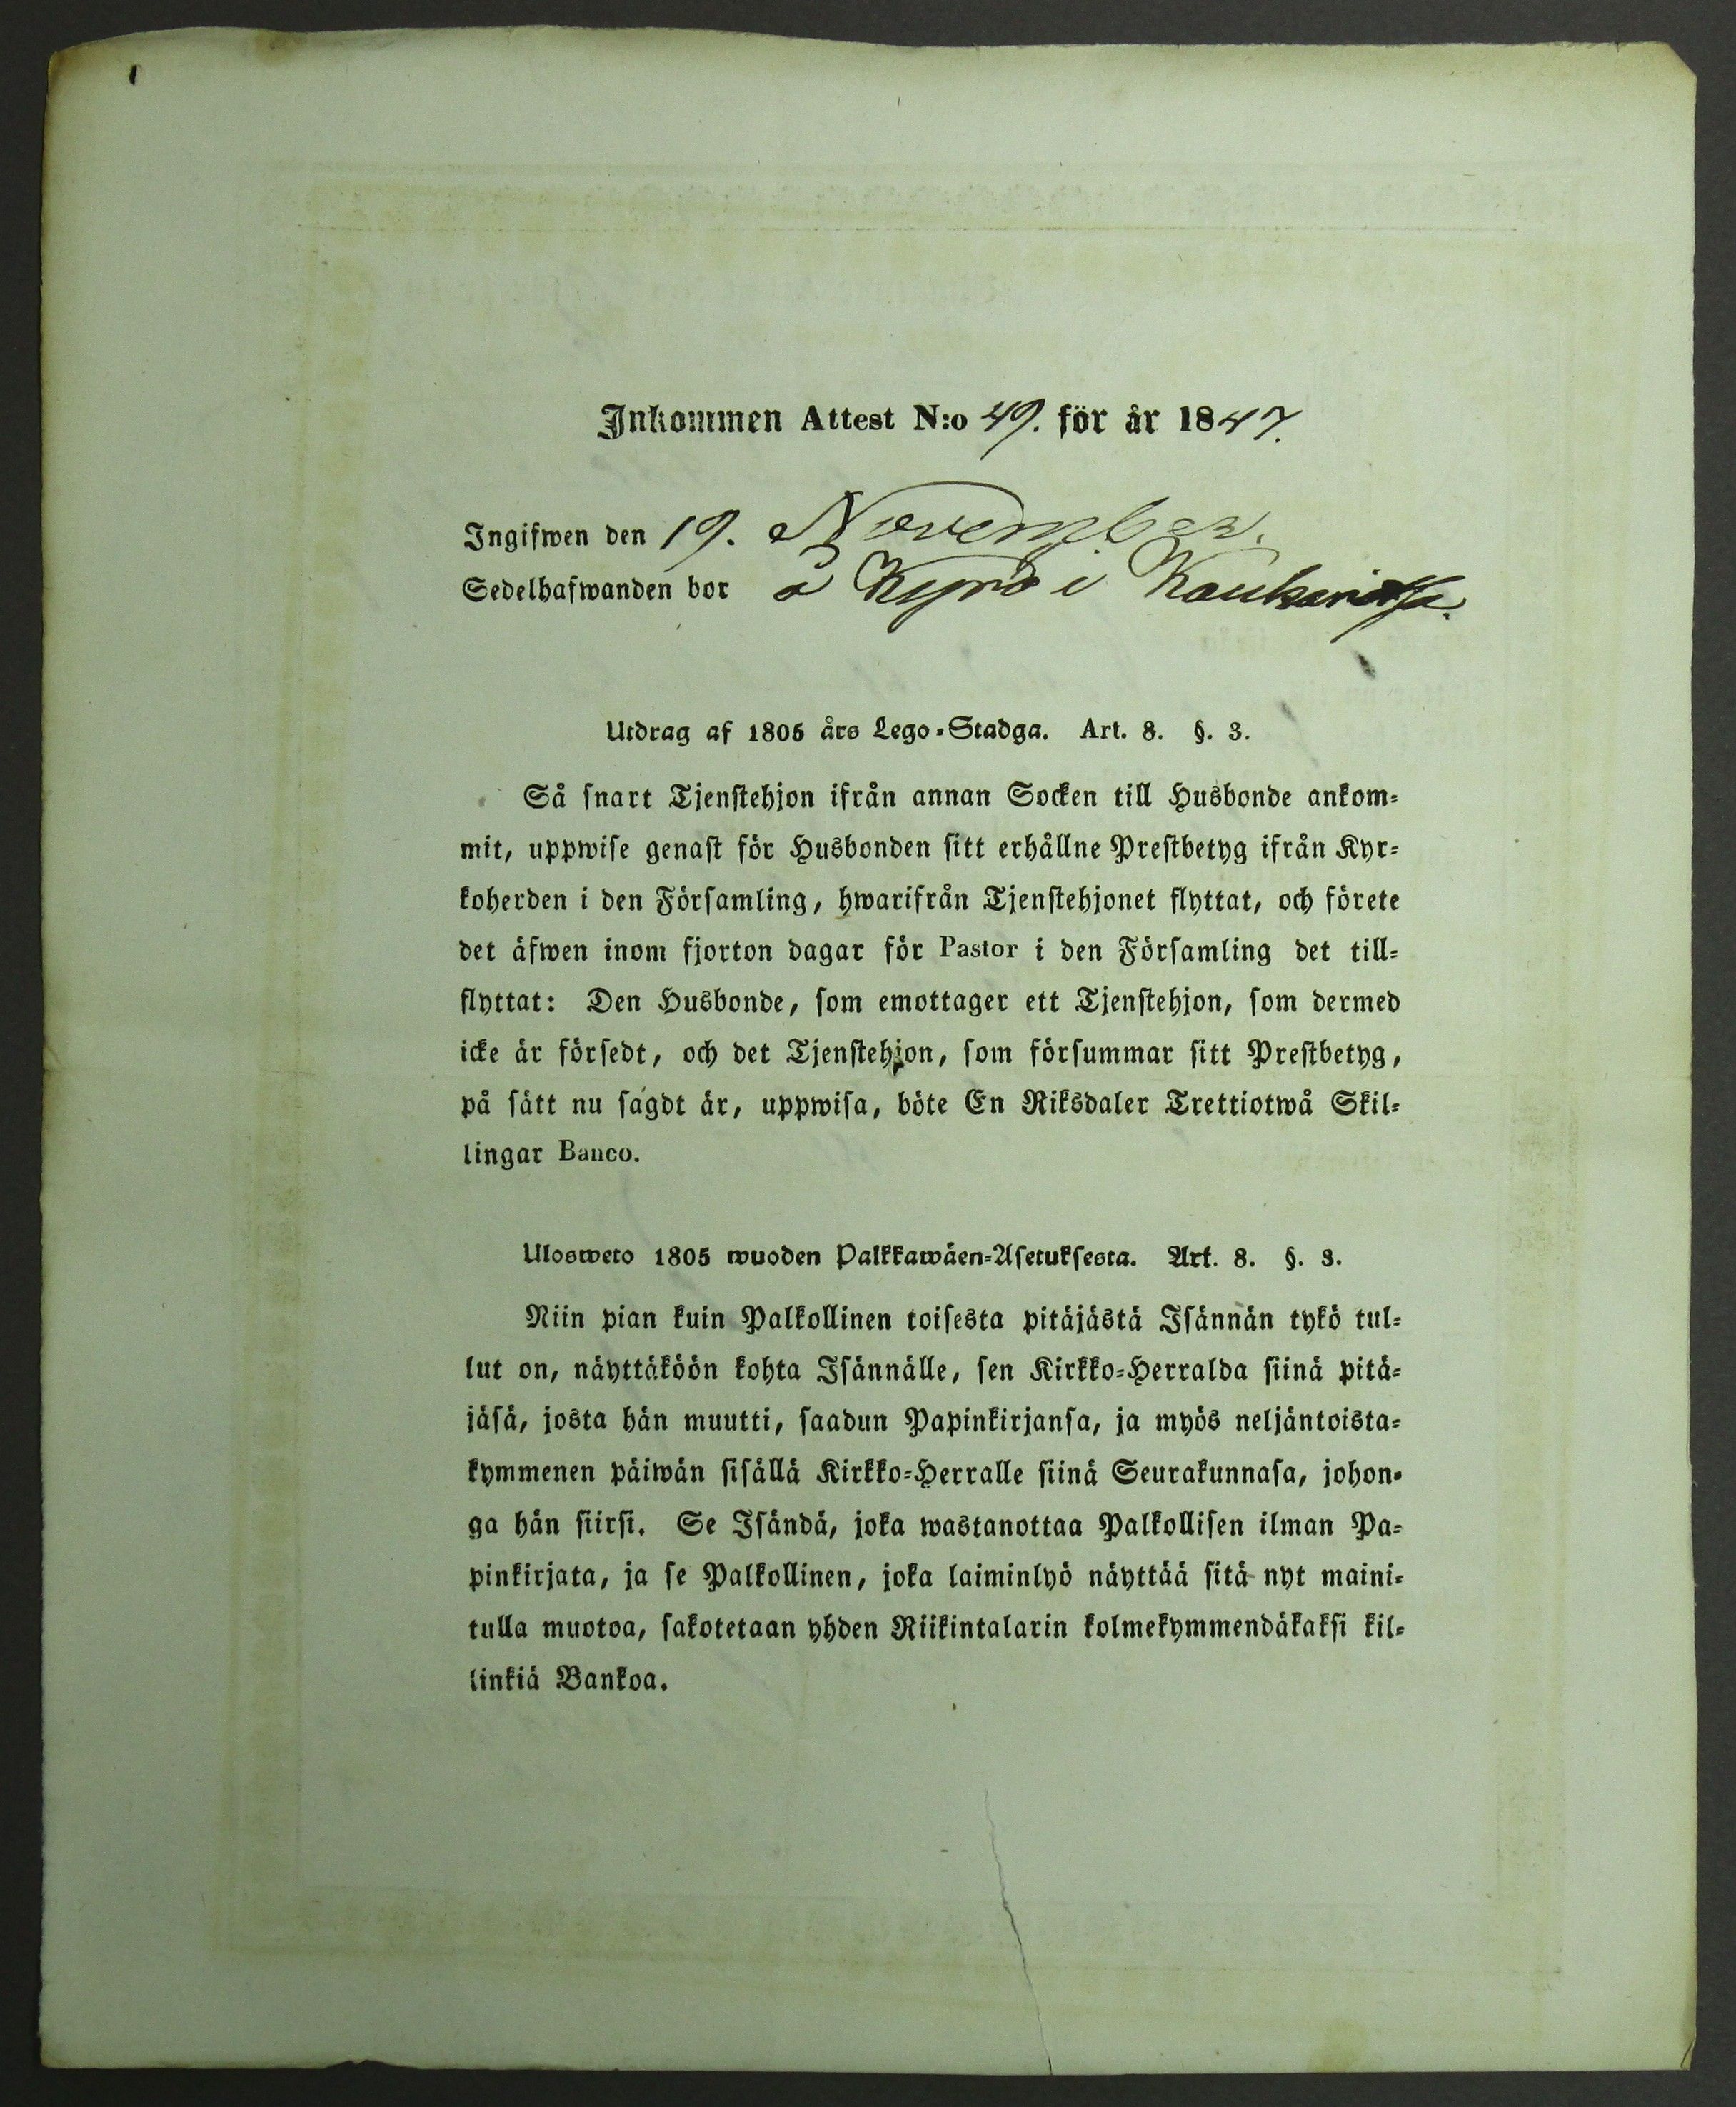 Inkommen Attest N:o 49. för år 1847.
Ingifwen den 19. November.
Sedelhafwanden bor å Kyrö i
Utdrag af 1805 års Lego-Stadga. Art. 8. §. 3.
Så snart Tjenstehjon ifrån annan Socken till Husbonde ankom-
mit, uppwise genast för Husbonden sitt erhållne Prestbetyg ifrån Kyr-
koherden i den Församling, hwarifrån Tjenstehjonet flyttat, och förete
det äfwen inom fjorton dagar för Pastor i den Församling det till-
flyttat: Den Husbonde, som emottager ett Tjenstehjon, som dermed
icke är försedt, och det Tjenstehjon, som försummar sitt Prestbetyg,
på sätt nu sagdt är, uppwisa, böte En Riksdaler Trettiotwå Skil-
lingar Banco.
Ulosweto 1805 wuoden Palkkawäen-Asetuksesta. Art. 8. §. 3.
Niin pian kuin Palkollinen toisesta pitäjästä Isännän tykö tul-
lut on, näyttäköön kohta Isännälle, sen Kirkko-Herralda siinä pitä-
jäsä, josta hän muutti, saadun Papinkirjansa, ja myös neljäntoista-
kymmenen päiwän sisällä Kirkko-Herralle siinä Seurakunnasa, johon-
ga hän siirsi. Se Isändä, joka wastanottaa Palkollisen ilman Pa-
pinkirjata, ja se Palkollinen, joka laiminlyö näyttää sitä nyt maini-
tulla muotoa, sakotetaan yhden Riikintalarin kolmekymmendäkaksi kil-
linkiä Bankoa.